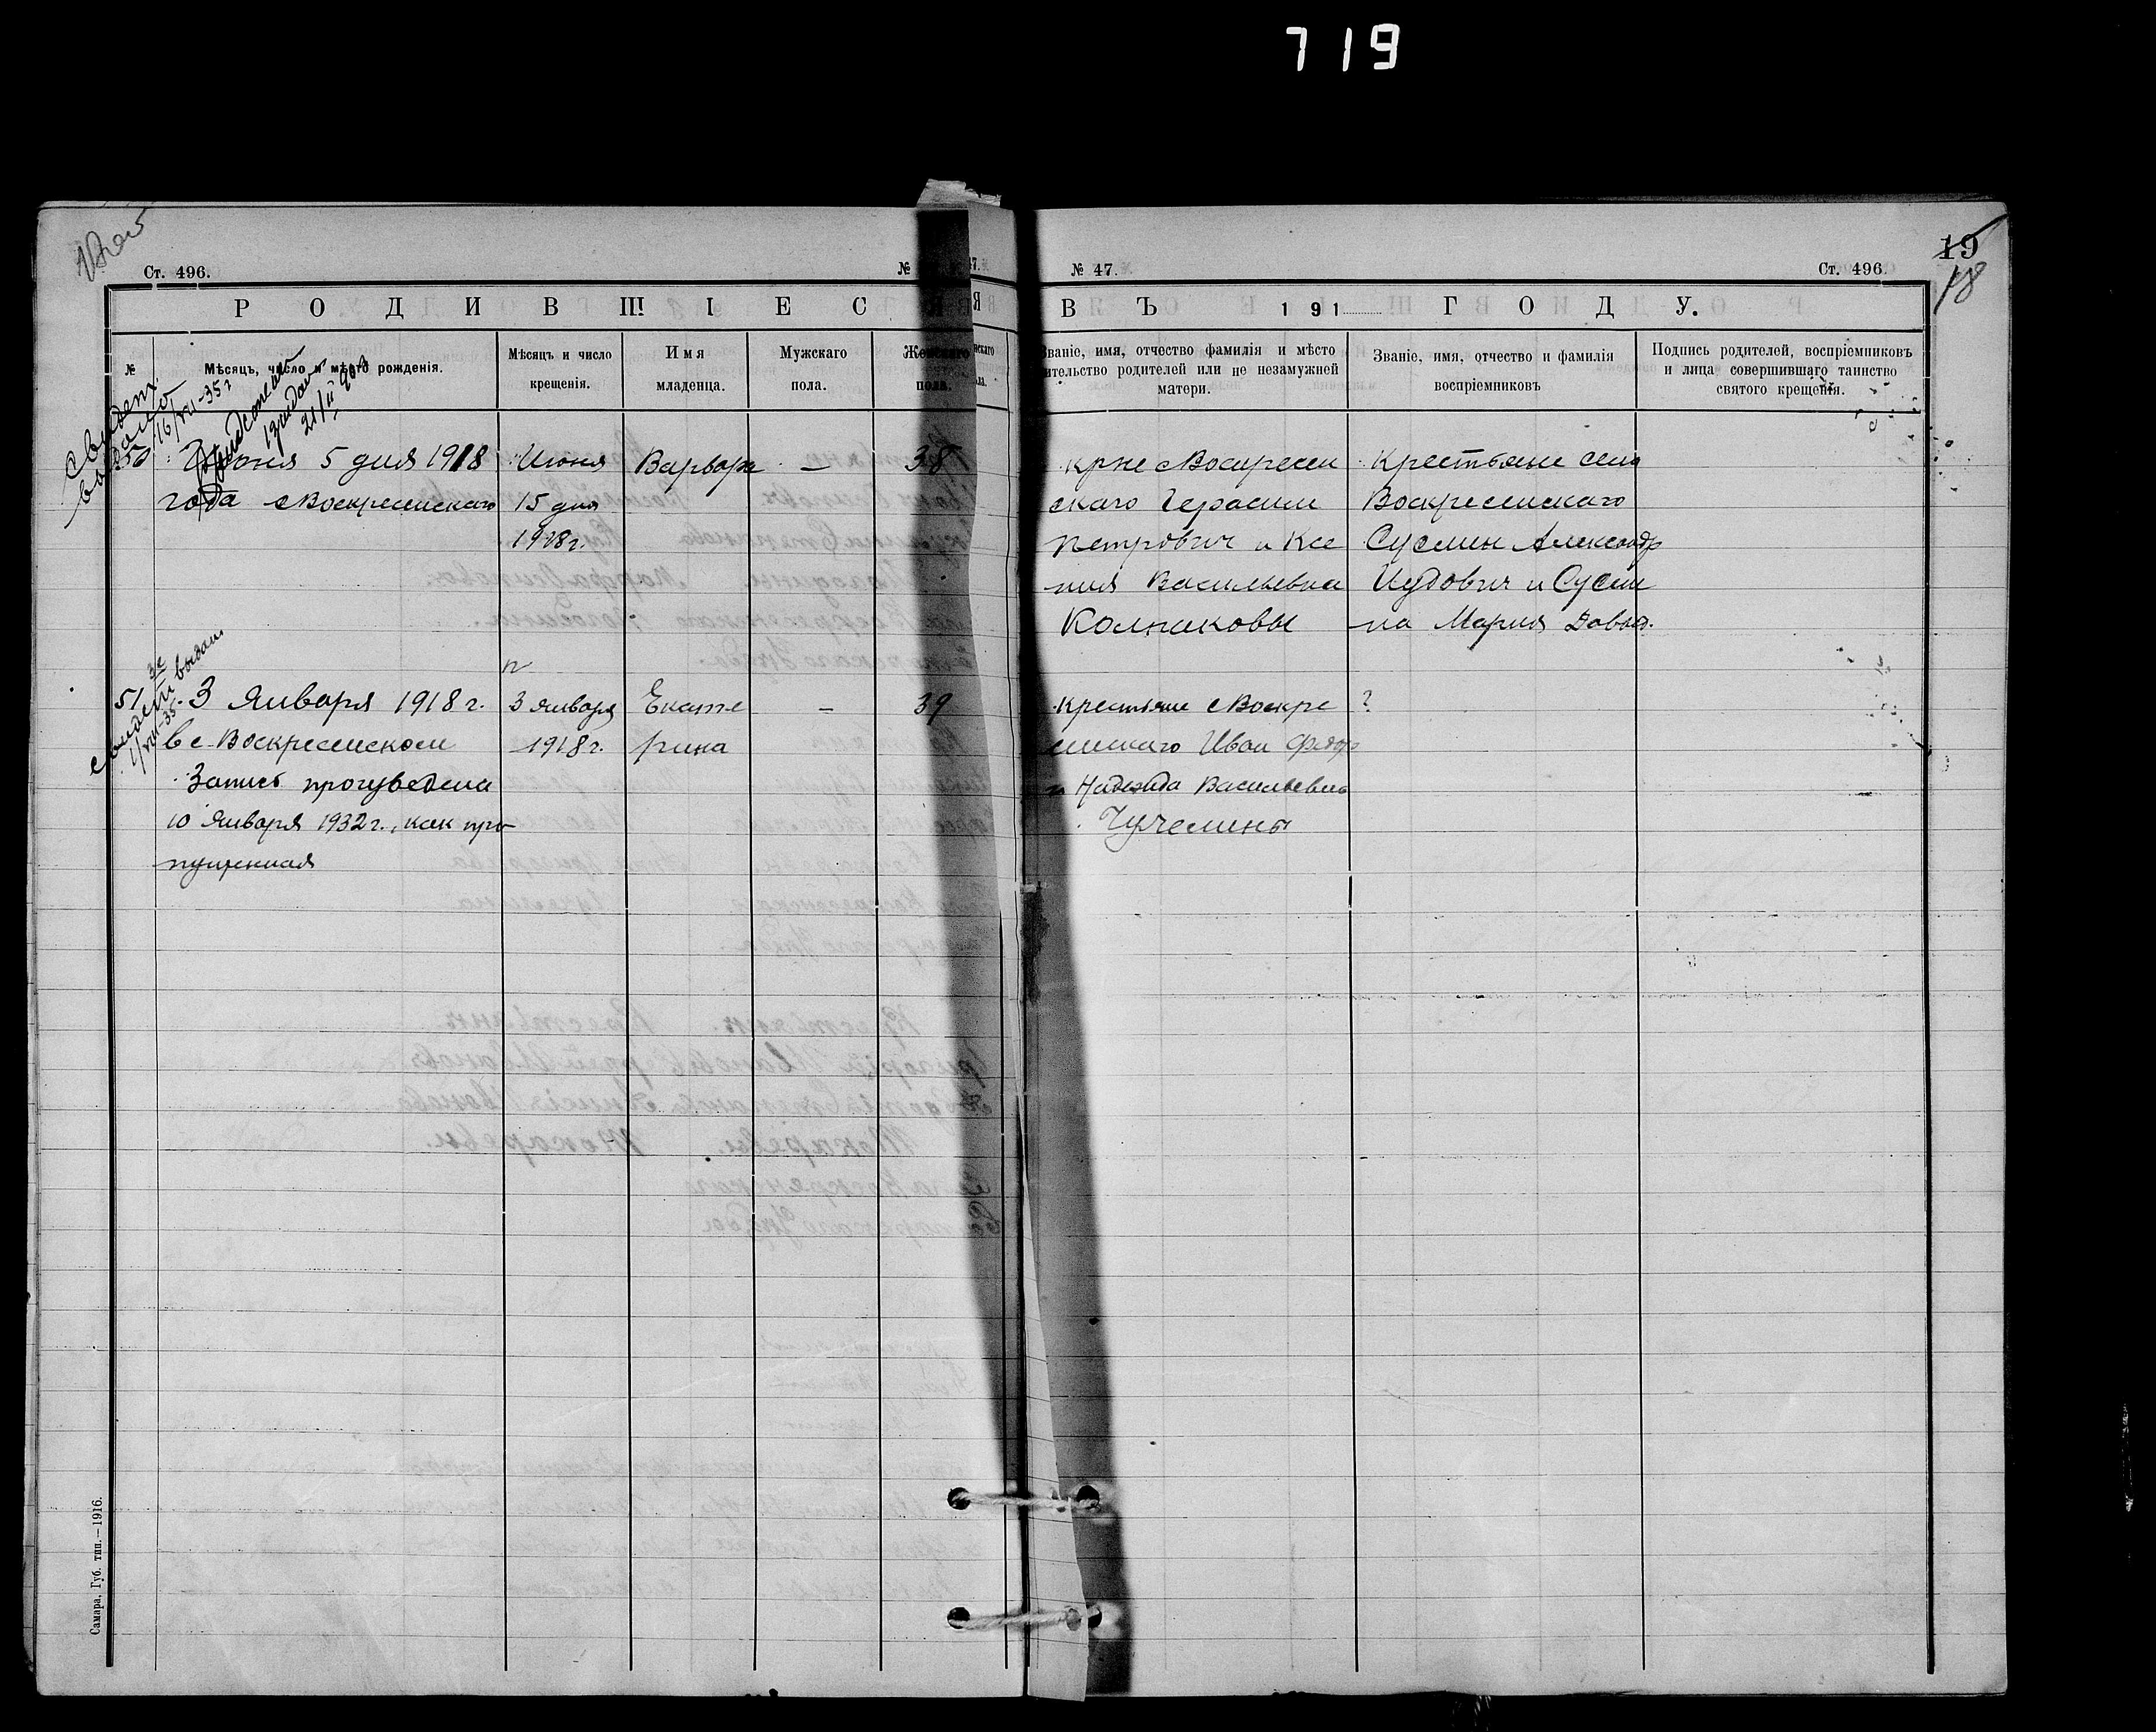 719
Ст. 496.
№
47.
РОДИВШІЕСЯ
№
Мѣсяцъ, число и мѣсто рожденія.
Мѣсяцъ и число
крещенія.
Имя
младенца.
Мужскаго
пола.
Женскаго
пола.
Свидет.
выдано
16/VII-35г
50
Июня 5 дня 1918
года с Воскресенскаго
Июня
15 дня
1918г.
Варвара
—
38
51
3 Января 1918 г.
в с. Воскресенском
Запись произведена
10 Января 1932 г., как про-
пущенная
3 января
1918 г.
Екате
рина
—
39
Самара, Губ. тип.—1916.
№ 47.
Ст. 496.
19
18
ВЪ 191 ГОДУ.
Званіе, имя, отчество фамилія и мѣсто
жительство родителей или не незамужней
матери.
Званіе, имя, отчество и фамилія
воспріемниковъ
Подпись родителей, воспріемниковъ
и лица совершившаго таинство
святого крещенія.
крне с Воскресен
скаго Герасим
Петрович и Ксе
ния Васильевна
Колпаковы
Крестьяне села
Воскресенскаго
Сусмин Александр
Иудович и Сусми
на Мария Давыд.
крестьяне с Воскре
сенскаго Иван Федор
и Надежда Васильевна
Чучемины
?